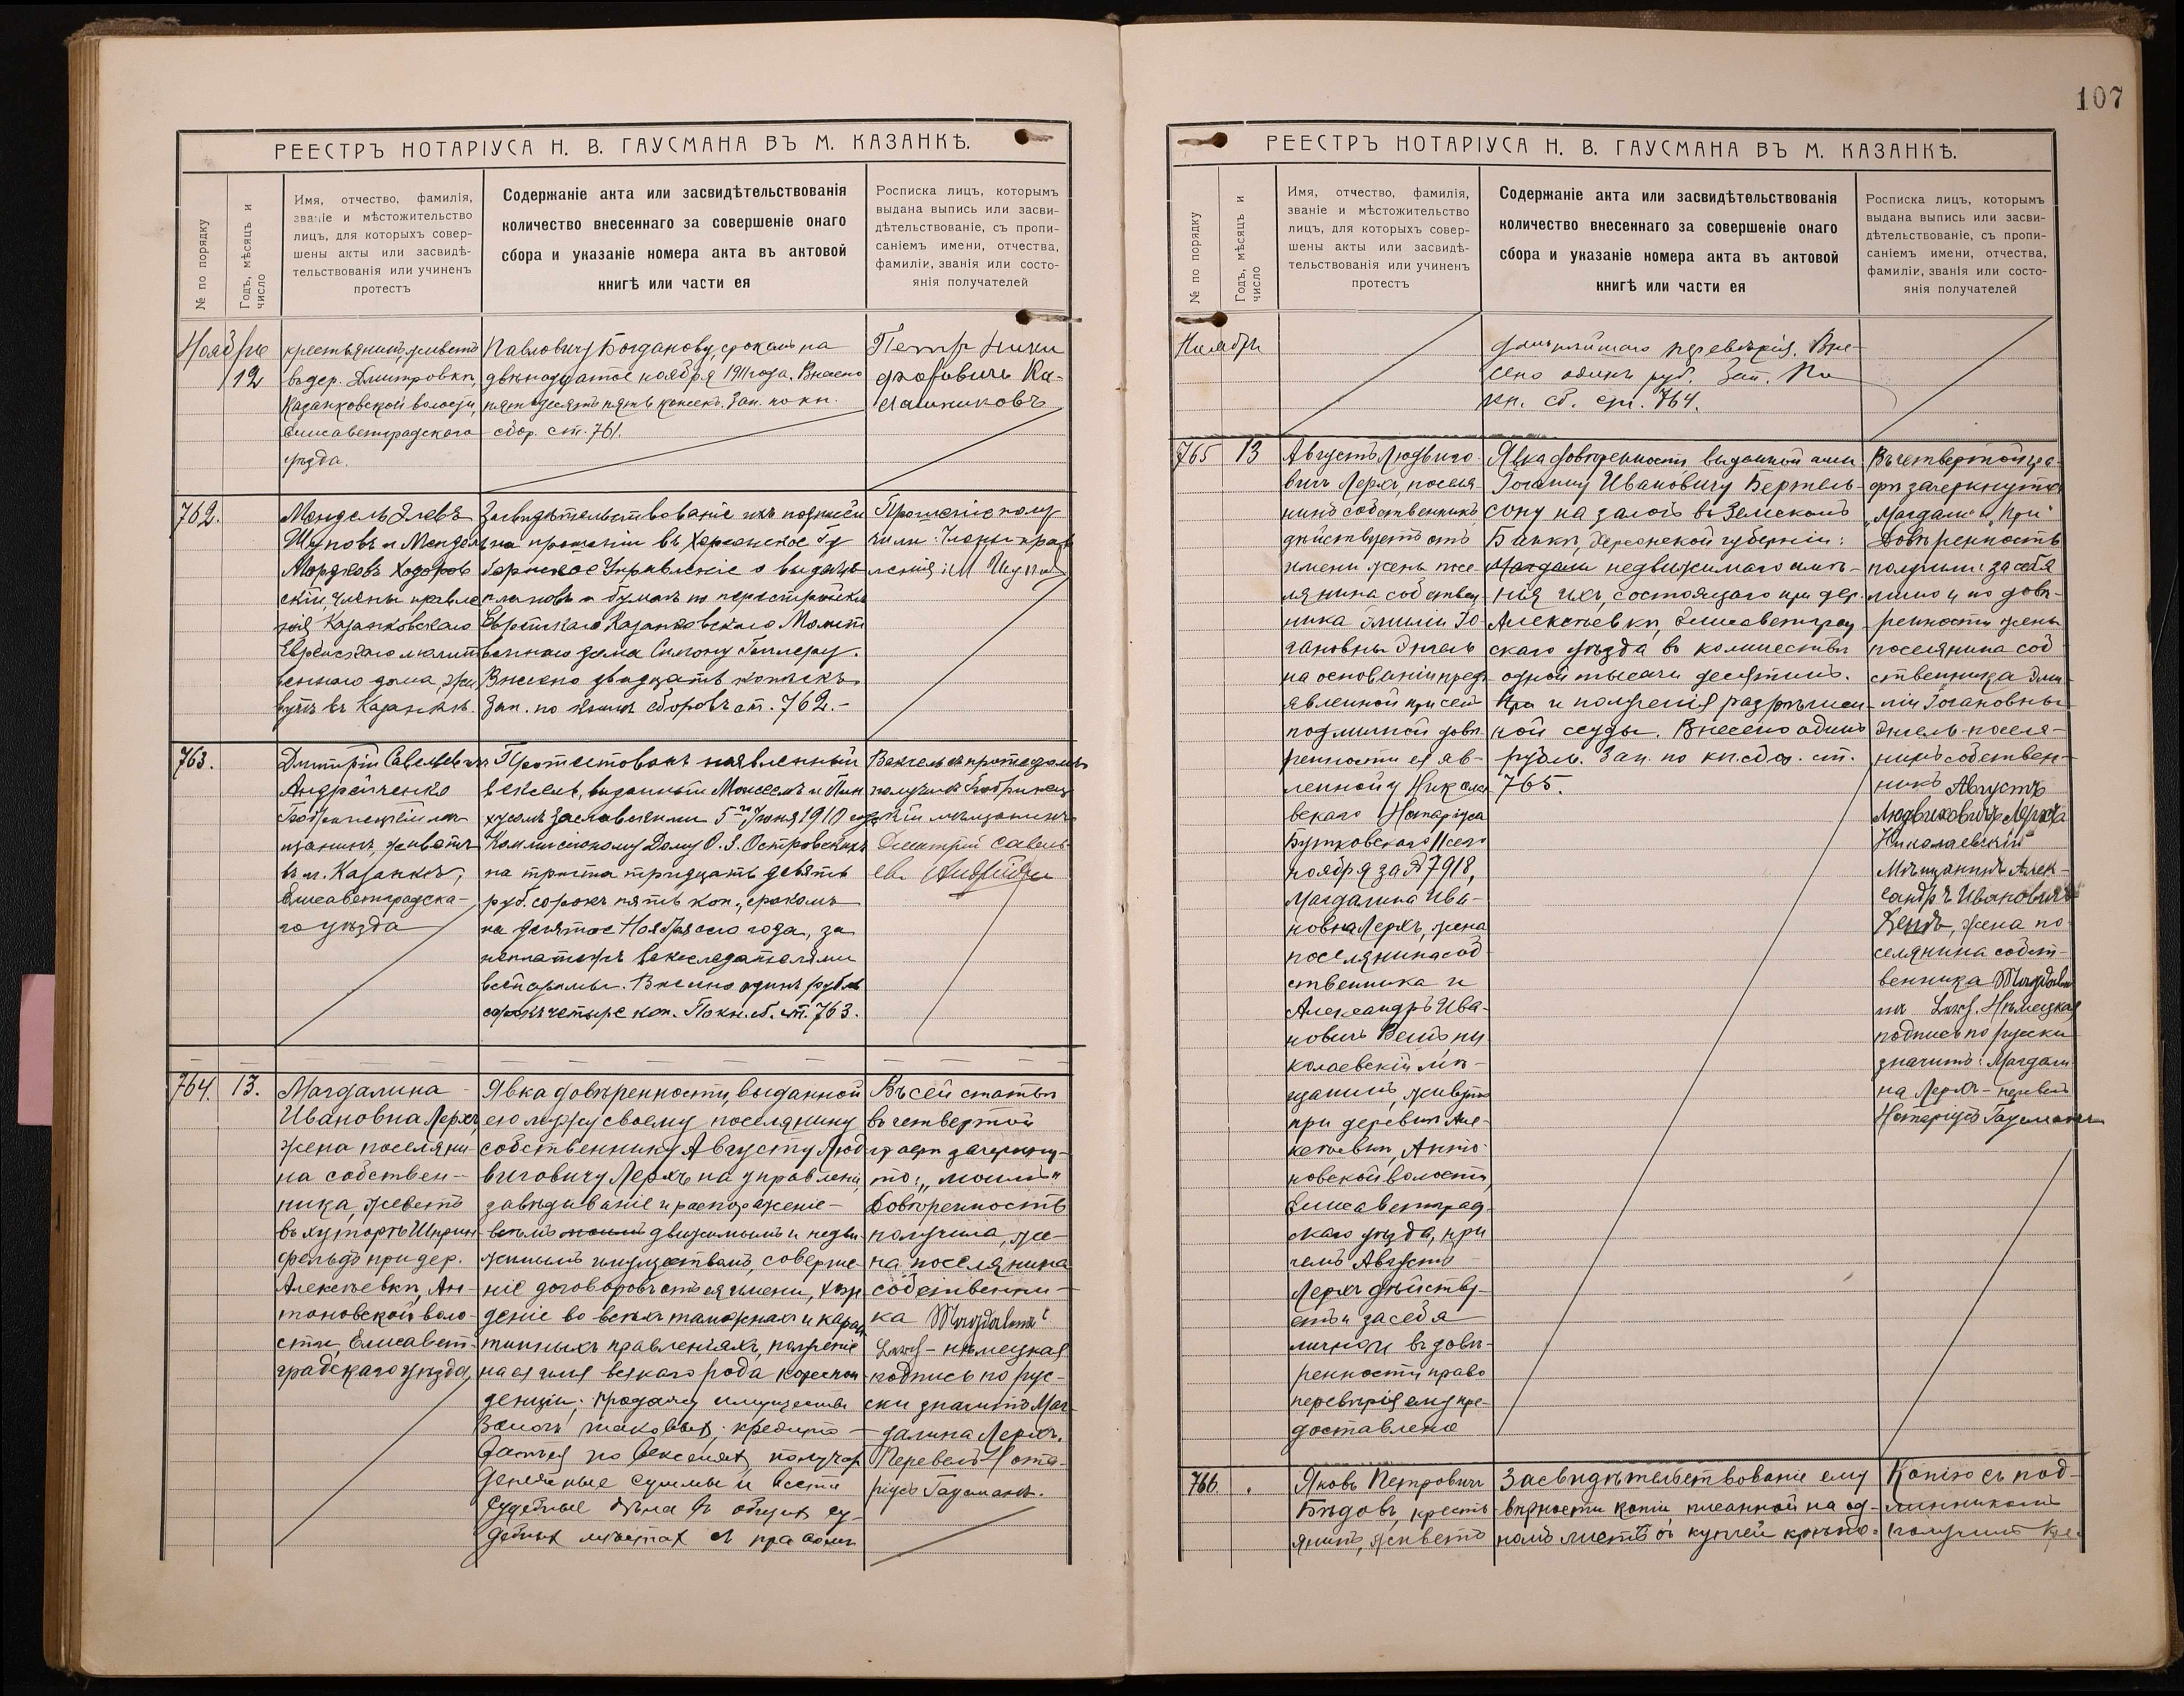 107
РЕЕСТРЪ НОТАРІУСА Н. В. ГАУСМАНА ВЪ М. КАЗАНКѢ.
№ по порядку
Годъ, мѣсяцъ и
число
Имя, отчество, фамилія,
званіе и мѣстожительство
лицъ, для которыхъ совер-
шены акты или засвидѣ-
тельствованія или учиненъ
протестъ
Содержаніе акта или засвидѣтельствованія
количество внесеннаго за совершеніе онаго
сбора и указаніе номера акта въ актовой
книгѣ или части ея
Росписка лицъ, которымъ
выдана выпись или засви-
дѣтельствованіе, съ пропи-
саніемъ имени, отчества,
фамиліи, званія или состо-
янія получателей
Ноября
12
крестьянинъ, живетъ
въ дер. Дмитровкѣ,
Казанковской волости
Елисаветградскаго
уѣзда.
Павловичу Богданову, срокомъ на
двѣнадцатое ноября 1911 года. Внесено
пятьдесятъ пять копѣекъ. Зап. по кн.
сбор. ст. 761.
Петр Ники
форовичъ
762.
Мендель
Шуповъ и Мендель
Мордковъ Ходоров
скій, члены правле
нія Казанковскаго
Еврейскаго молит
веннаго дома, жи
вутъ въ Казанкѣ.
Засвидѣтельствованіе ихъ подписи
на прошеніи въ Херсонское Гу
бернское Управленіе о выдачѣ
плановъ и бумагъ по перестройкѣ
Еврейскаго Казанковскаго Молит
веннаго дома Симону Геллеру.
Внесено двадцать копѣекъ.
Зап. по книгѣ сборовъ ст. 762.-
Прошеніе полу
чили: Члены прав
ленія: М
763.
Дмитрій Савельевичъ
Андрейченко
Бобринецкій мѣ
щанинъ, живетъ
въ м. Казанкѣ,
Елисаветградска-
го уѣзда
Протестованъ неявленный
вексель, выданный Моисеемъ и Пин
хусомъ Заславскими 5го Іюня 1910 года
Коммисіонному Дому О. З. Островскихъ
на триста тридцать девять
руб. сорокъ пять коп., срокомъ
на десятое Ноября сего года, за
неплатежъ векселедателями
всей суммы. Внесено одинъ рубль
сорокъ четыре коп. По кн. сб. ст. 763.
Вексель съ протестомъ
получилъ Бобринец
кій мѣщанинъ
Дмитрій Савель
ев.
764. 13.
Магдалина
Ивановна Лерхъ,
жена поселяни-
на собствен-
ника, живетъ
въ хуторѣ
фельдъ при дер.
Алексѣевкѣ, Ан-
тоновской воло-
сти, Елисавет-
градскаго уѣзда,
Явка довѣренности, выданной
ею мужу своему поселянину
собственнику Августу Люд
виговичу Лерхъ на управленіе,
завѣдываніе и распоряженіе
всѣмъ моимъ движимымъ и недви-
жимымъ имуществомъ, соверше-
ніе договоровъ отъ ея имени, хож
деніе во всѣхъ таможнахъ и каран
тинныхъ правленіяхъ, полученіе
на ея имя всякаго рода кореспон
денціи; продажу имуществъ
залогъ таковыхъ; кредито
ваться по векселямъ, получать
денежные суммы и вести
судебные дѣла въ общихъ су-
дебныхъ мѣстахъ съ правомъ
Въ сей статьѣ
въ четвертой
графѣ зачеркну-
то: „моимъ"
Довѣренность
получила, же-
на поселянина
собственни-
ка Magdalina
Lerch – нѣмецкая
подпись по рус-
ски значитъ Маг-
далина Лерхъ.
Перевелъ Нота-
ріусъ Гаусманъ.
РЕЕСТРЪ НОТАРІУСА Н. В. ГАУСМАНА ВЪ М. КАЗАНКѢ.
№ по порядку
Годъ, мѣсяцъ и
число
Имя, отчество, фамилія,
званіе и мѣстожительство
лицъ, для которыхъ совер-
шены акты или засвидѣ-
тельствованія или учиненъ
протестъ
Содержаніе акта или засвидѣтельствованія
количество внесеннаго за совершеніе онаго
сбора и указаніе номера акта въ актовой
книгѣ или части ея
Росписка лицъ, которымъ
выдана выпись или засви-
дѣтельствованіе, съ пропи-
саніемъ имени, отчества,
фамиліи, званія или состо-
янія получателей
Ноября
дальнѣйшаго передовѣрія. Вне-
сено одинъ руб. Зап. По
кн. сб. ст. 764.
765 13
Августъ Людвиго-
вичъ Лерхъ, поселя-
нинъ собственникъ
дѣйствуетъ отъ
имени жены посе-
лянина собствен
ника Эмиліи Іо
гановны Энгель
на основаніи пред
явленной при сей
подлинной довѣ-
ренности ея яв-
ленной у Николаев
вскаго Нотаріуса
Бутковскаго 11 сего
ноября за № 7918,
Магдалина Ива-
новна Лерхъ, жена
поселянина соб
ственника и
Александръ Ива-
новичъ ни
колаевскій мѣ-
щанинъ, живутъ
при деревнѣ Але-
ксѣевкѣ, Анто-
новской волости,
Елисаветград
скаго уѣзда, при
чемъ Августъ
Лерхъ дѣйству-
етъ и за себя
лично и въ довѣ-
ренности право
передовѣрія ему пре-
доставлено
Явка довѣренности выданной ими
Іоганну Ивановичу Бертель-
сону на залогъ въ Земскомъ
Банкѣ, Херсонской губерніи:
недвижимаго имѣ-
нія ихъ, состоящаго при дер.
Алексѣевкѣ, Елисаветград
скаго уѣзда въ количествѣ
одной тысячи десятинъ.
При и полученія разрѣшен-
ной ссуды. Внесено одинъ
рубль. Зап. по кн. сбор. ст.
765.
Въ четвертой гра-
фѣ зачеркнуто
„Магдали" и „При"
Довѣренность
получили: за себя
лично и по довѣ-
ренности жены
поселянина соб
ственника Эми-
ліи Іогановны
Энгель поселя-
нинъ собствен-
никъ Августъ
Людвиховичъ Лерхъ
Николаевскій
Мѣщанинъ Алек-
сандръ Ивановичъ
жена по
селянина собст-
венника Magdali
na Lerch. Нѣмецкая
подпись по русски
значитъ: Магдали
на Лерхъ – перевелъ
Нотаріусъ Гаусманъ
766.
Яковъ Петровичъ
Бѣдовъ, кресть
янинъ, живетъ
Засвидѣтельствованіе ему
вѣрности копіи писанной на од-
номъ листѣ съ купчей крѣпо-
Копію съ под-
линникомъ
получилъ Кре-